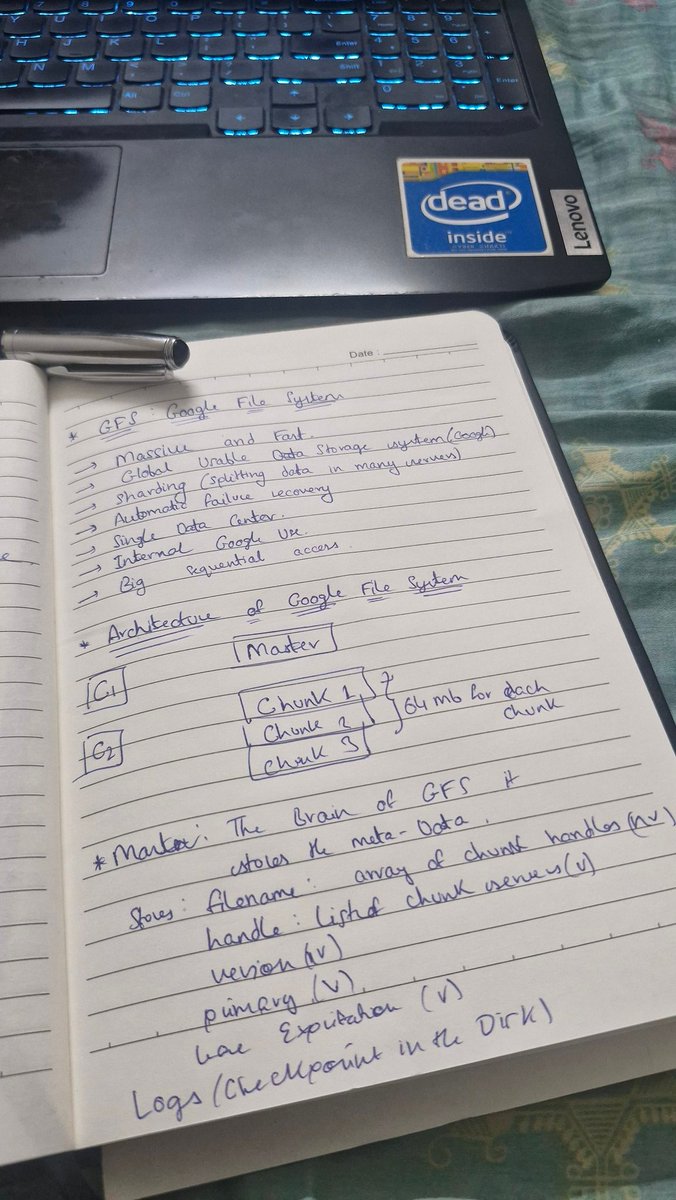 Enter
Shift
Alt
Ctrl
Enter
dead
inside
Lenovo
Date :
* GFS : Google File System
→ Massive and Fast.
→ Global Usable Data Storage system (Google)
→ Sharding (splitting data in many servers)
→ Automatic failure recovery
→ Single Data Center.
→ Internal Google Use.
→ Big sequential access.
* Architecture of Google File System
Master
C1
Chunk 1
Chunk 2
64 mb for each
chunk
C2
Chunk 3
* Master: The Brain of GFS it
stores the meta-Data.
Stores: filename: array of chunk handles (nv)
handle: list of chunk servers (v)
version (nv)
primary (v)
Expiration (v)
Logs (Checkpoint in the Disk)